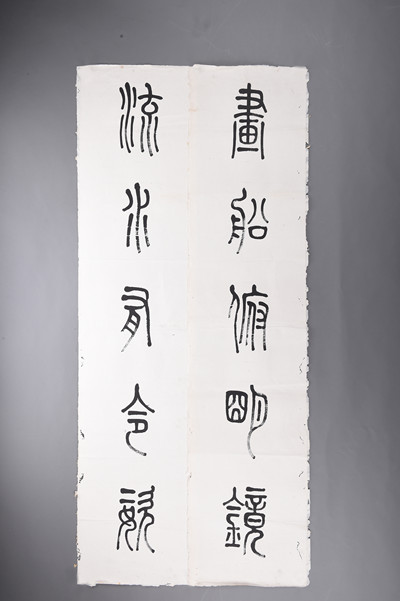 畫船俯明鏡
流水有令姿